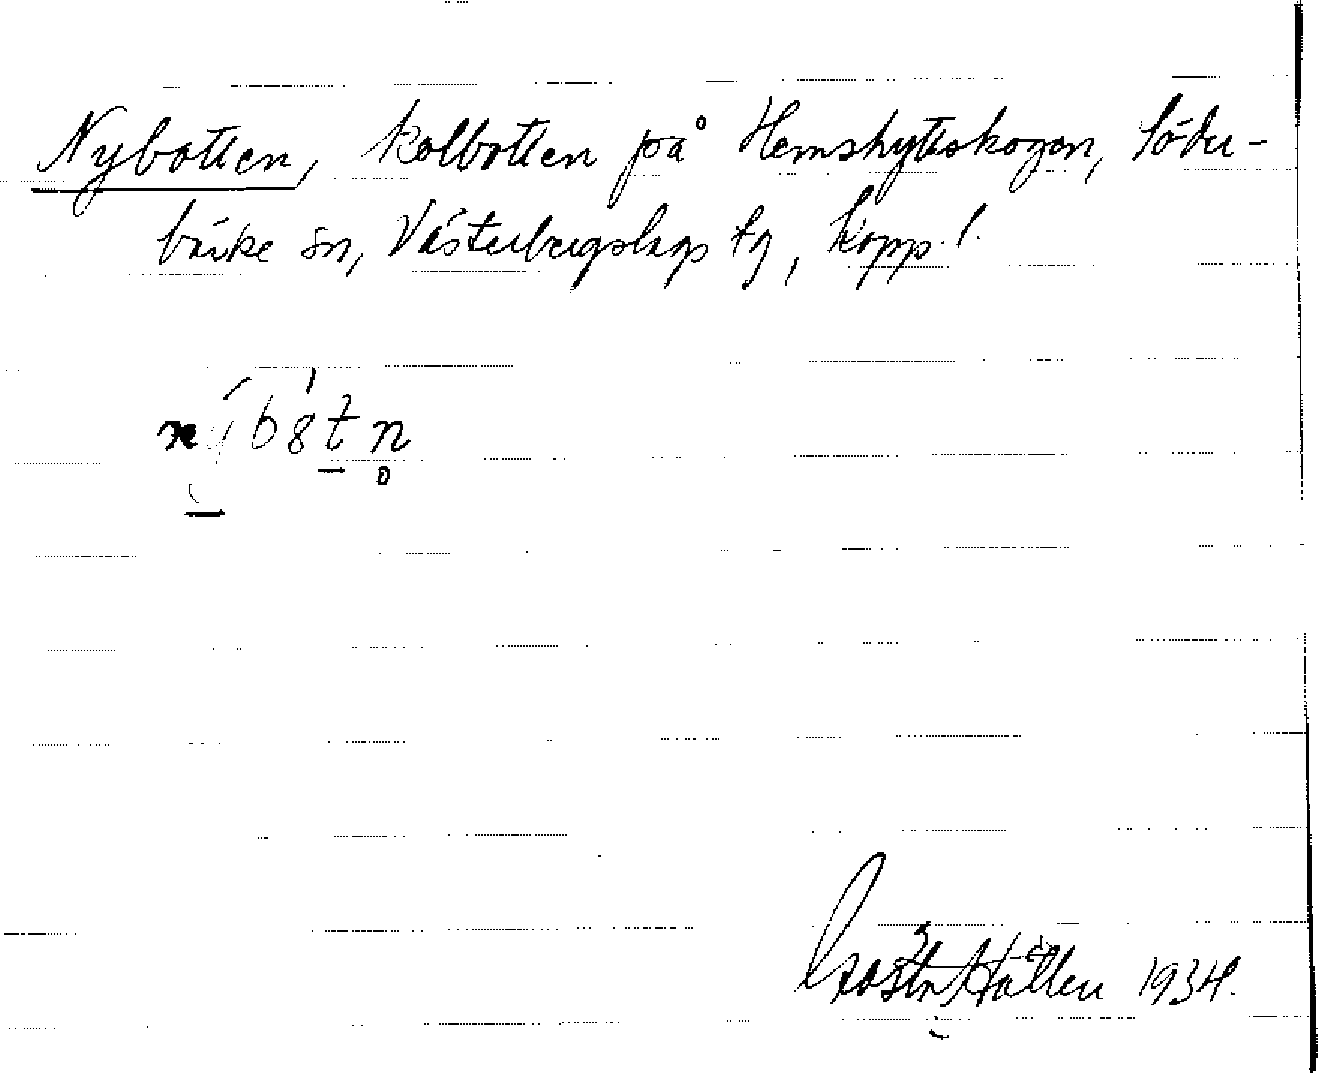 Nybotten, kolbotten på Hemshytteskogen, Söder-
bärke sn, Västerbergslags tg, Kopp. l.
1934.